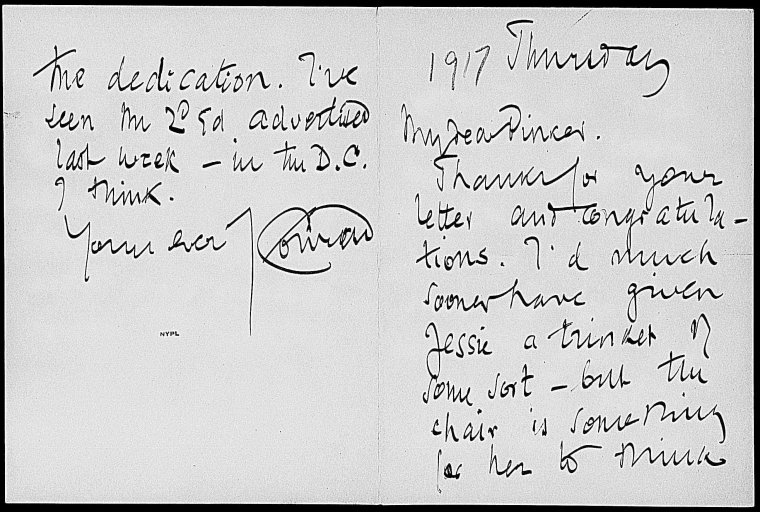 1917 Thursday
My dear Pinker.
Thanks for your
letter and congratula-
tions. I'd much
sooner have given
Jessie a trinket of
some sort – but the
chair is something
for her to think
the dedication. I've
seen the 2d Ed advertised
last week – in the D.C.
I think.
Yours ever J Conrad
NYPL